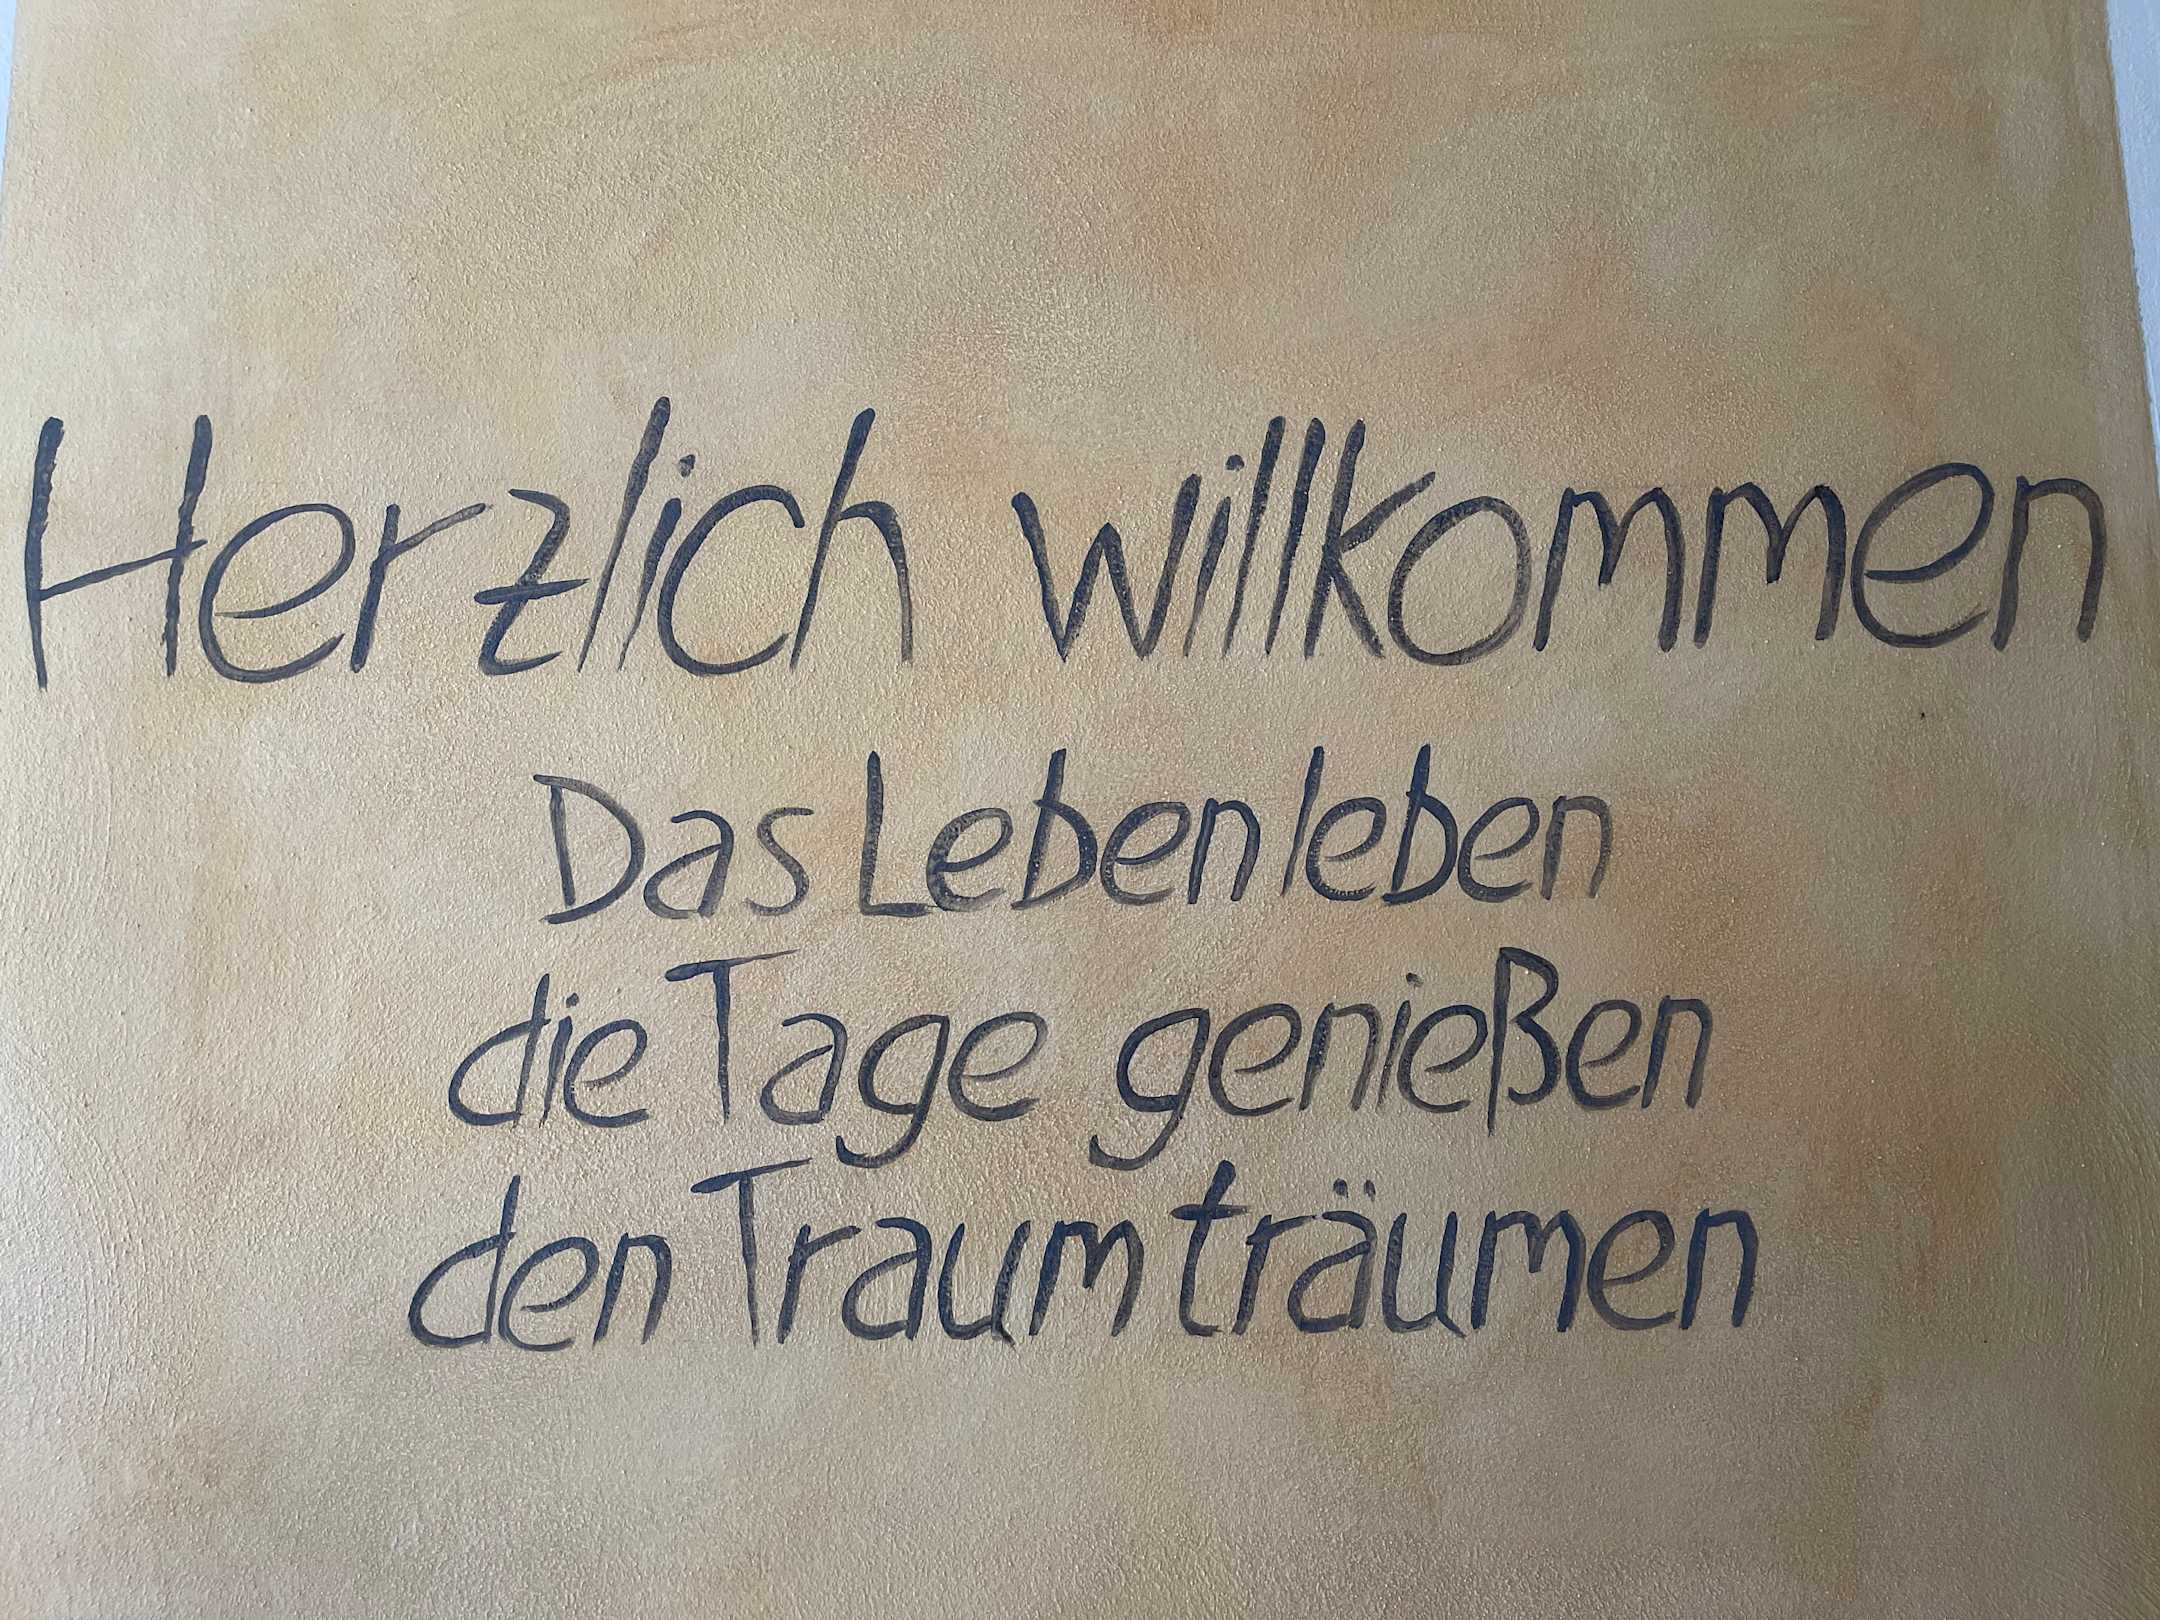 Herzlich willkommen
Das Leben leben
die Tage genießen
den Traum träumen